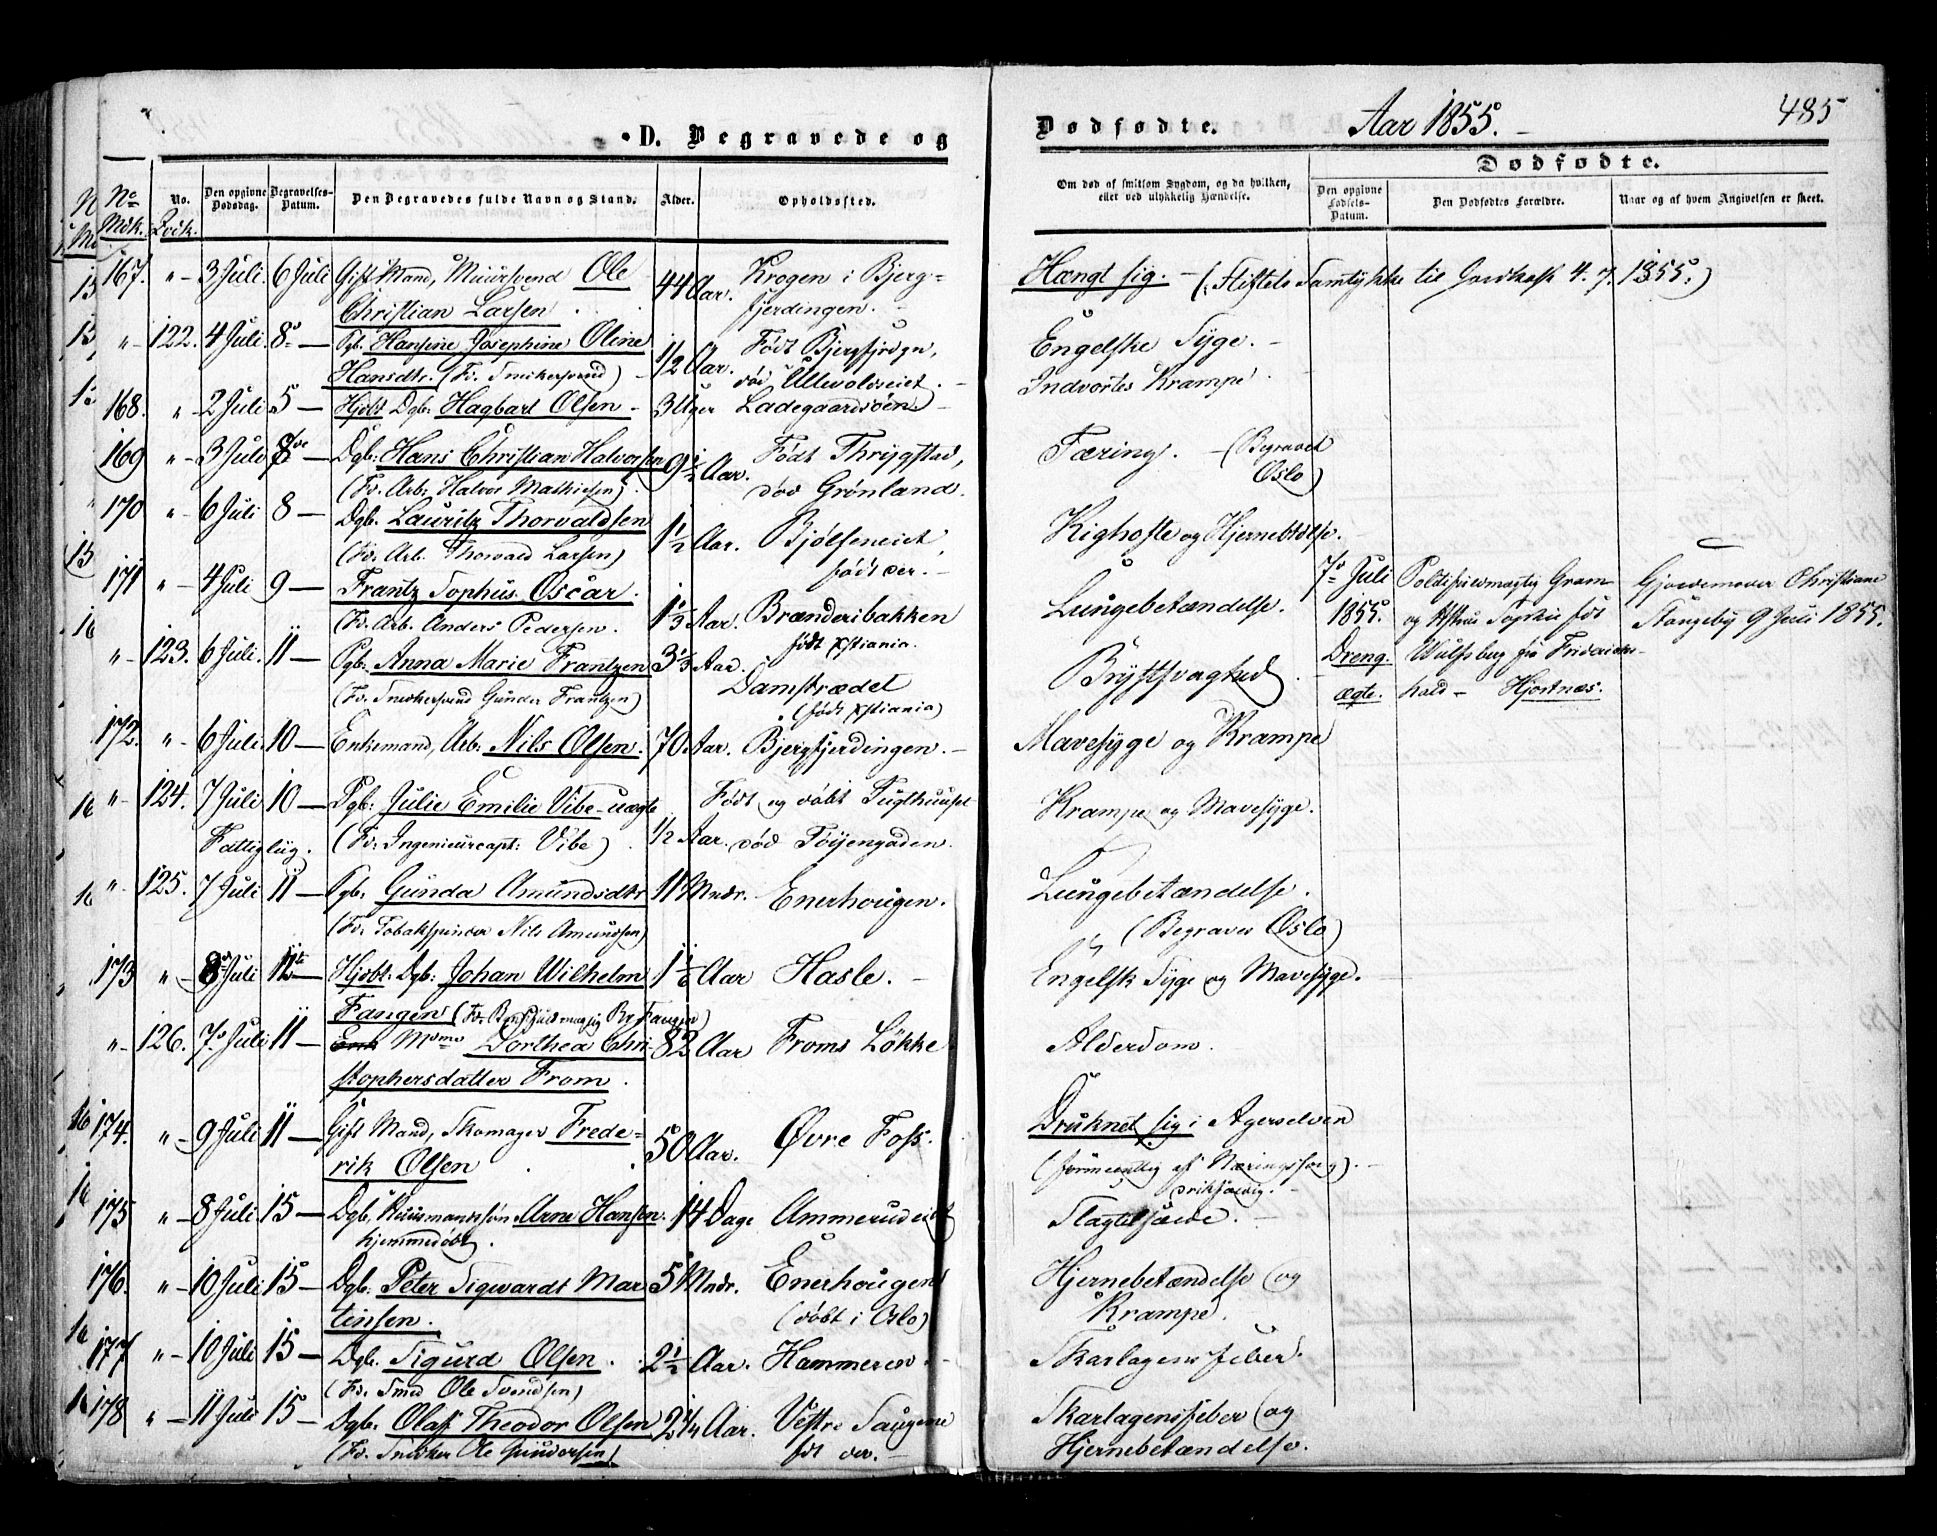 D. Begravede og
Dødfødte.
Aar 1855.
485
Dødfødte.
No. Mdk.
No. Qvdk.
Den opgivne Dødsdag.
Begravelses-Datum.
Den Begravedes fulde Navn og Stand.
Alder.
Opholdssted.
Om død af smitsom Sygdom, og da hvilken, eller ved ulykkelig Hændelse.
Den opgivne Fødsels-Datum.
Den Dødfødtes Forældre.
Naar og af hvem Angivelsen er skeet.
167. " 3 Juli. 6 Juli Gift Mand, Muursvend Ole 44 Aar. Krogen i Bjerg= Hængt sig. - (Stiftets Samtykke til 4. 7. 1855.)
Christian Larsen. fjerdingen. -
" 122. 4 Juli. 8 - Pgb. Hansine Josephine Oline 1/2 Aar. Født Bjergfjrdgn, Engelske Syge. -
Hansdtr. (Fdr. Snekersvend) død Ullevoldseiet. Indvortes Krampe.
168. " 2 Juli 5 - Hjdbt Dgb: Hagbart Olsen - 3 Uger Ladegaardsøen -
169 " 3 Juli 8 - Dgb: Hans Christian Halvorsen 9 1/2 Aar. Født Thrygstad, Tæring. - (Begravet Oslo)
(Fdr. Arb: Halvor Mathiesen). død Grønland.
170 " 6 Juli 8 - Dgb. Lauritz Thorvaldsen 1 1/2 Aar. Bjølseneiet, Kighoste og Hjernebtdlse.
(Fdr. Arb. Thorvald Larsen) født der. -
171 " 4 Juli 9 - Frantz Sophus Oscar. 1 1/3 Aar. Brænderibakken Lungebetændelse.
(Fdr. Arb. Anders Pedersen. født Xstiania.
" 123. 6 Juli. 11 - Pgb. Anna Marie Frantzen 3 1/3 Aar. Damstrædet Brystsvaghed
(Fdr. Snekersvend Gunder Frantzen) (født Xstiania)
7 Juli 1855. Dreng. ægte.
Politifuldmægtig Gram og Hustru Sophie født Wulfsberg fra Fridrichshald - Hjortnæs.
Gjordemoder Christiane Stangeby 9 Juli 1855.
172. " 6 Juli. 10 - Enkemand, Arb. Nils Olsen. 70 Aar. Bjergfjerdingen. - Mavesyge og Krampe
" 124. 7 Juli 10 - Pgb: Julie Emilie Vibe - uægte Født og døbt Tugthuuset Krampe og Mavesyge.
Fattiglig. (Fdr. Ingenieurcapt: Vibe) 1/2 Aar. død Töyengaden.
" 125. 7 Juli 11 - Pgb. Gunda Amundsdtr 11 Mndr. Enerhougen. Lungebetændelse.
(Fdr. Tobakspinder Nils Amundsen) (Begraves Oslo)
173 " 8 Juli 11 - Hjdbt: Dgb: Johan Wilhelm 1 1/6 Aar Hasle. - Engelsk Syge og Mavesyge.
Fangen (Fdr. Fangen)
" 126. 7 Juli 11 - Mdme Dorthea Chri- 82 Aar Froms Løkke Alderdom.
stophersdatter From.
174. " 9 Juli 11 - Gift Mand, Skomager Frede= 50 Aar. Øvre Foss. Druknet sig i Agerselven
rik Olsen (formeentlig af Næringssorg). -
drikfældig. -
175 " 8 Juli 15 - Dgb, Huusmandssøn Arne Hansen. 14 Dage Ammerudeiet
hjemmedøbt.
176. " 10 Juli 15 - Dgb: Peter Sigwardt Mar 5 Mndr. Enerhougen Hjernebetændelse og
tinsen. (døbt i Oslo) Krampe.
177 " 10 Juli 15 - Dgb. Sigurd Olsen. 2 1/2 Aar. Hammeren. Skarlagensfeber.
(Fdr. Smed Ole Svendsen)
178 " 11 Juli 15 - Dgb. Olaf Theodor Olsen 2 1/4 Aar. Vestre Saugene Skarlagensfeber og
(Fdr. Snekker Ole Gundersen) fdt der. - Hjernebetændelse.